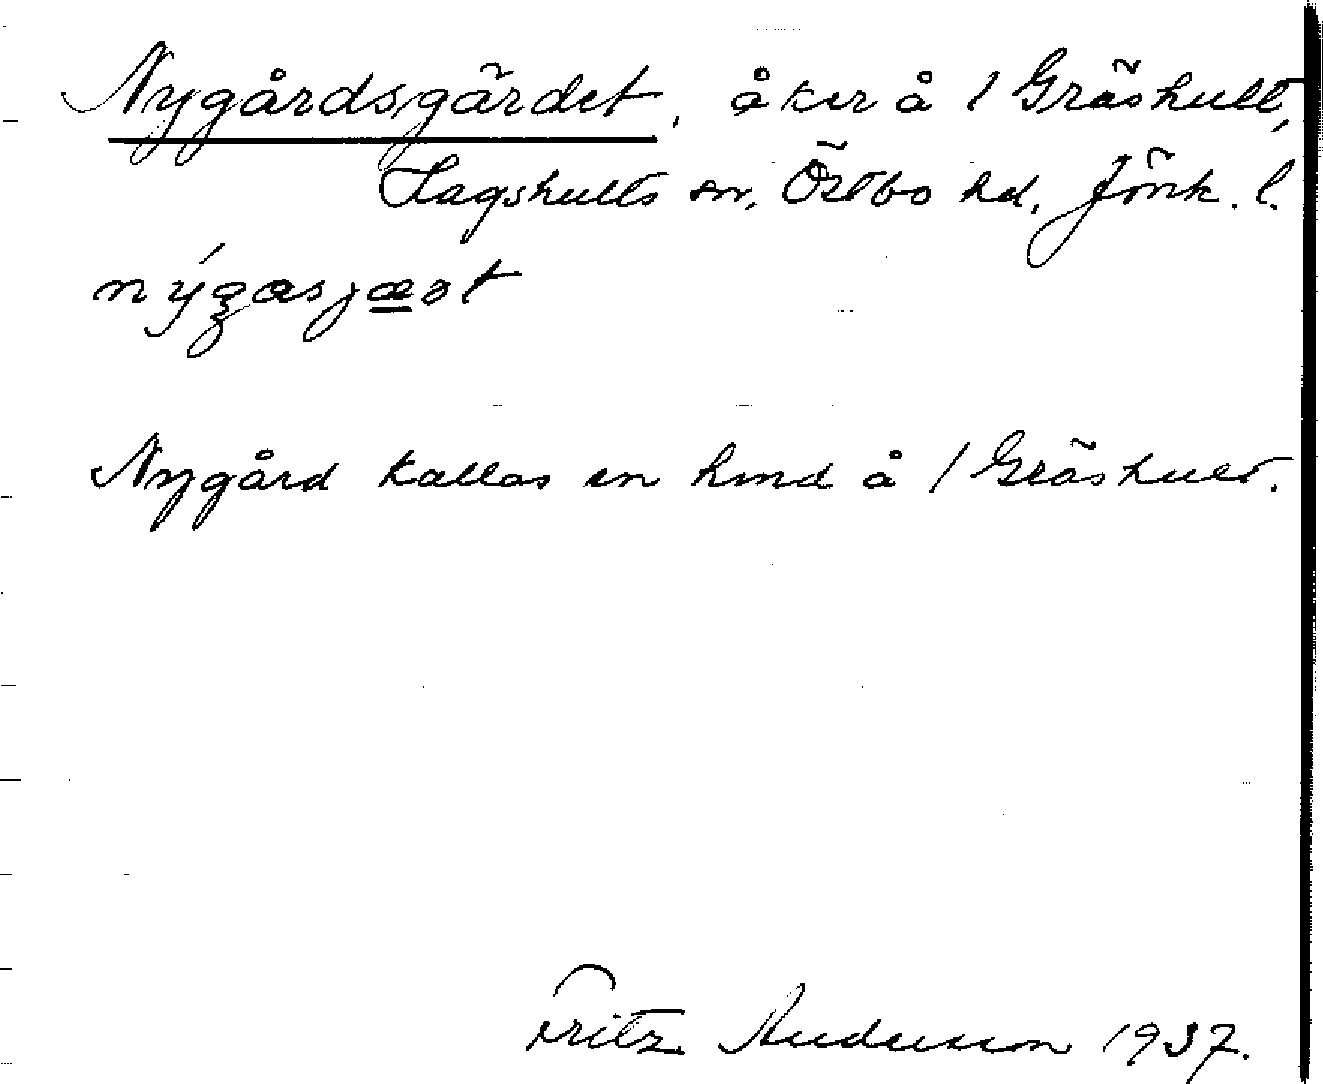 Nygårdsgärdet, åker å 1 Gräshult,
Hagshults sn, Östbo hd, Jönk. l.
nýgasjæət
Nygård kallas en hmd å 1 Gräshult.
Fritz Andersson 1937.